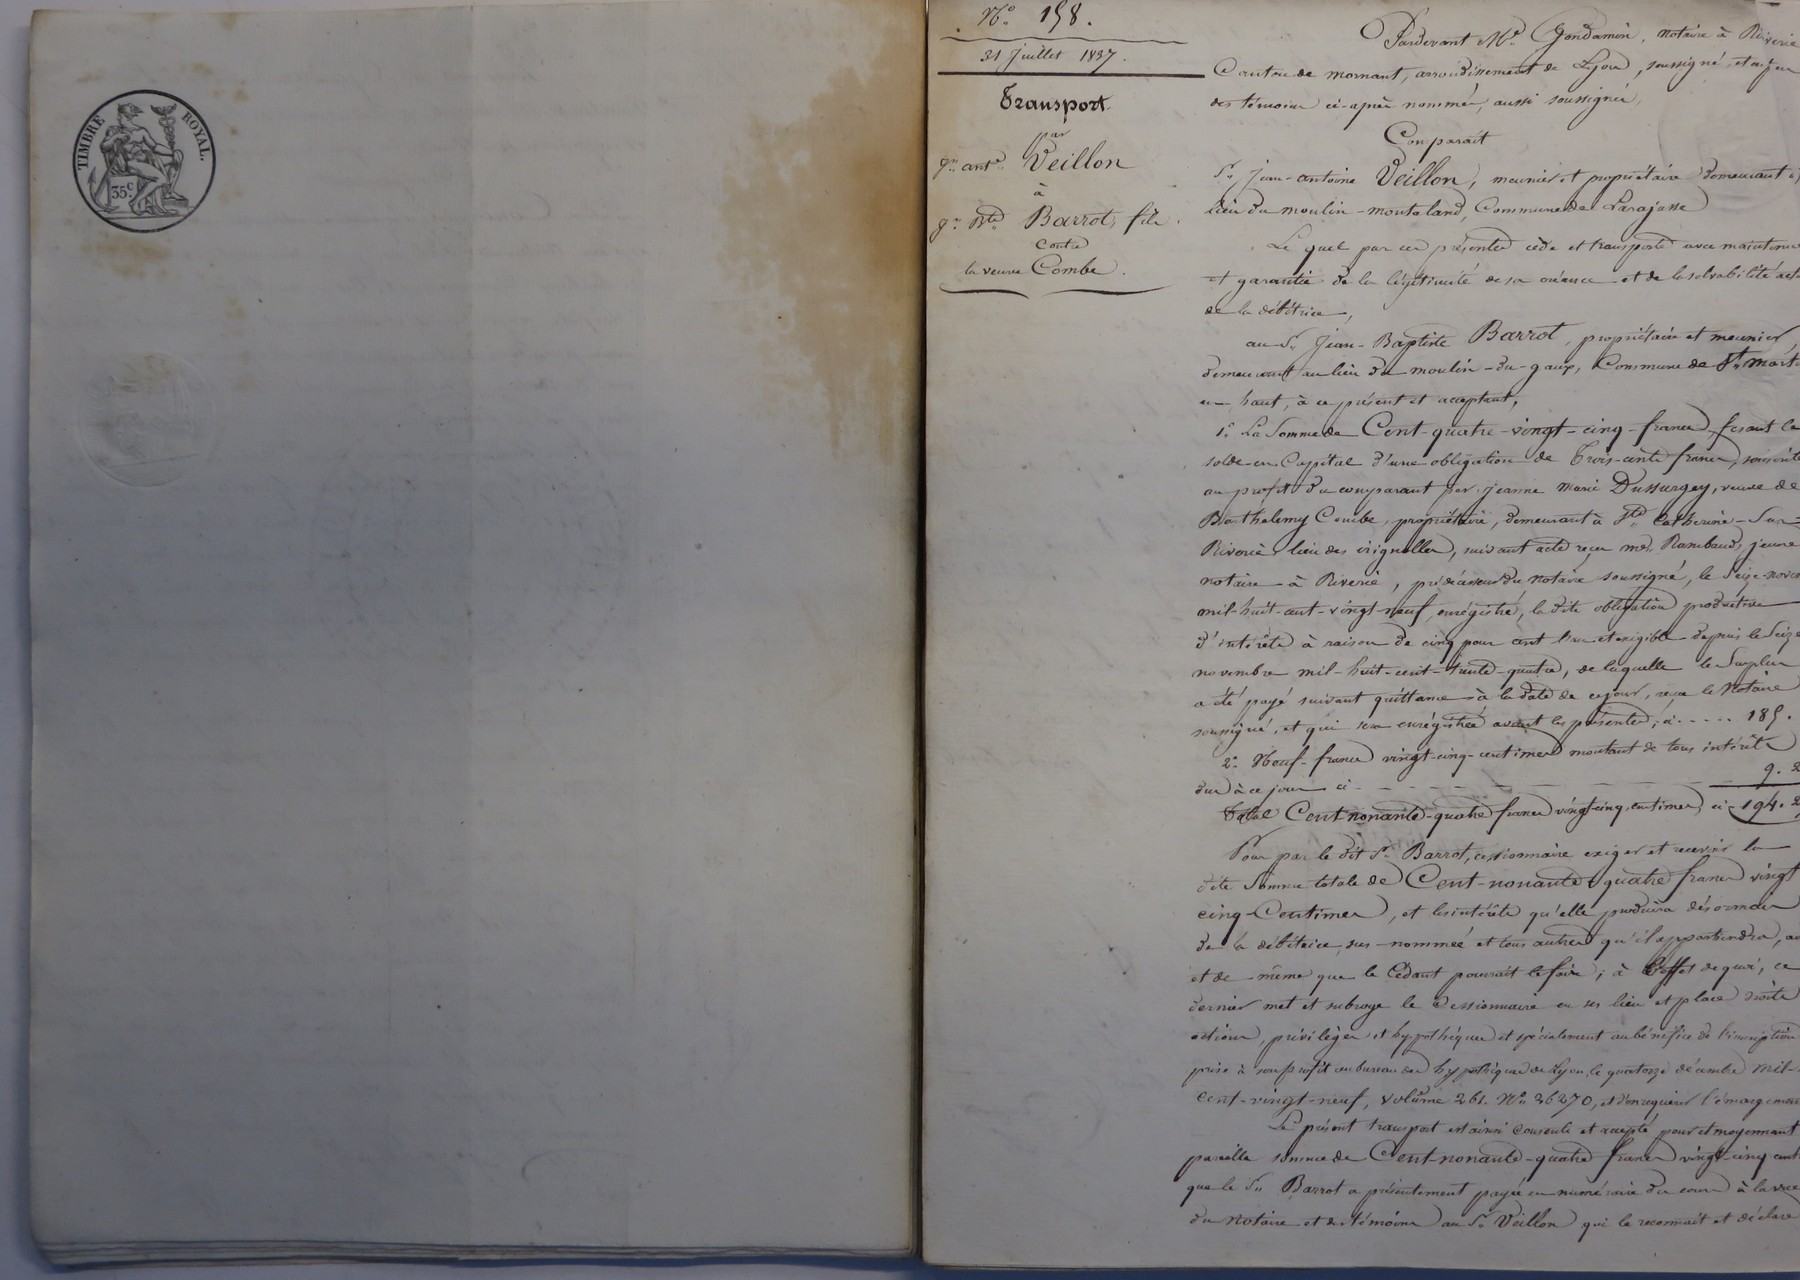 TIMBRE ROYAL.
35c
No. 158.
31 Juillet 1837.
Transport
par
jn. ante. Veillon
à
jn. Bte. Barrot, fils.
contre
la veuve Combe.
Pardevant Me. Gondamin, notaire à Riverie
Canton de mornant, arrondissement de Lyon, soussigné, et en
des témoins ci-après nommés, aussi soussignés,
Comparait
Sr. Jean-antoine Veillon, meunier et propriétaire demeurant
lieu du moulin-montaland, Commune de Larajasse
Le quel par ces présentes cède et transporte avec maintenue
et garantie de la légitimité de sa créance et de la solvabilité
de la débitrice,
au Sr. Jean-Baptiste Barrot, propriétaire et meunier,
demeurant au lieu du moulin-du-gaux, Commune de St. mart
en-haut, à ce présent et acceptant,
1o. La Somme de Cent-quatre-vingt-cinq-francs, fesant le
solde en Capital d'une obligation de Trois-cents francs, souscrite
au profit du comparant par jeanne marie Dussurgey, veuve de
Barthelemy Combe, propriétaire, demeurant à Ste. Catherine-Sur-
Riverie lieu des, suivant acte reçu me. Rambaud, jeune
notaire à Riverie, prédécesseur du notaire soussigné, le Seize-nove
mil-huit-cent-vingt-neuf, enrégistré, la dite obligation productive
d'intérêts à raison de cinq pour cent l'an et exigible depuis le Seize
novembre mil-huit-cent-trente-quatre, de laquelle le Surplus
a été payé suivant quittance à la date de ce jour, reçue le Notaire
soussigné, et qui sera enrégistrée avant les présentes, ci..... 185.
2o. Neuf-francs vingt-cinq-centimes montant de tous intérêts
dus à ce jour ci - - - - - - 9. 2
Total Cent nonante-quatre francs vingt-cinq centimes, ci 194. 2
Pour par le dit Sr. Barrot, cessionnaire exiger et recevoir la
dite Somme totale de Cent-nonante-quatre francs vingt
cinq-Centimes, et les intérêts qu'elle produira désormais
de la débitrice sus-nommée et tous autres qu'il appartiendra,
et de même que le Cédant pourrait le faire; à l'effet de quoi, ce
dernier met et subroge le Cessionnaire en ses lieu et place droits
actions, privilèges et hypothèques et spécialement au bénéfice de l'inscription
prise à son profit au bureau des hypothèques de Lyon, le quatorze décembre mil-
cent-vingt-neuf, volume 261. No. 26270, et d'en requérir l'émargement
Le présent transport est ainsi consenti et accepté pour et moyennant
pareille somme de Cent-nonante-quatre francs vingt-cinq cent
que le Sr. Barrot a présentement payée en numéraire du cours à la vue
du notaire et des témoins au Sr. Veillon qui le reconnait et déclare